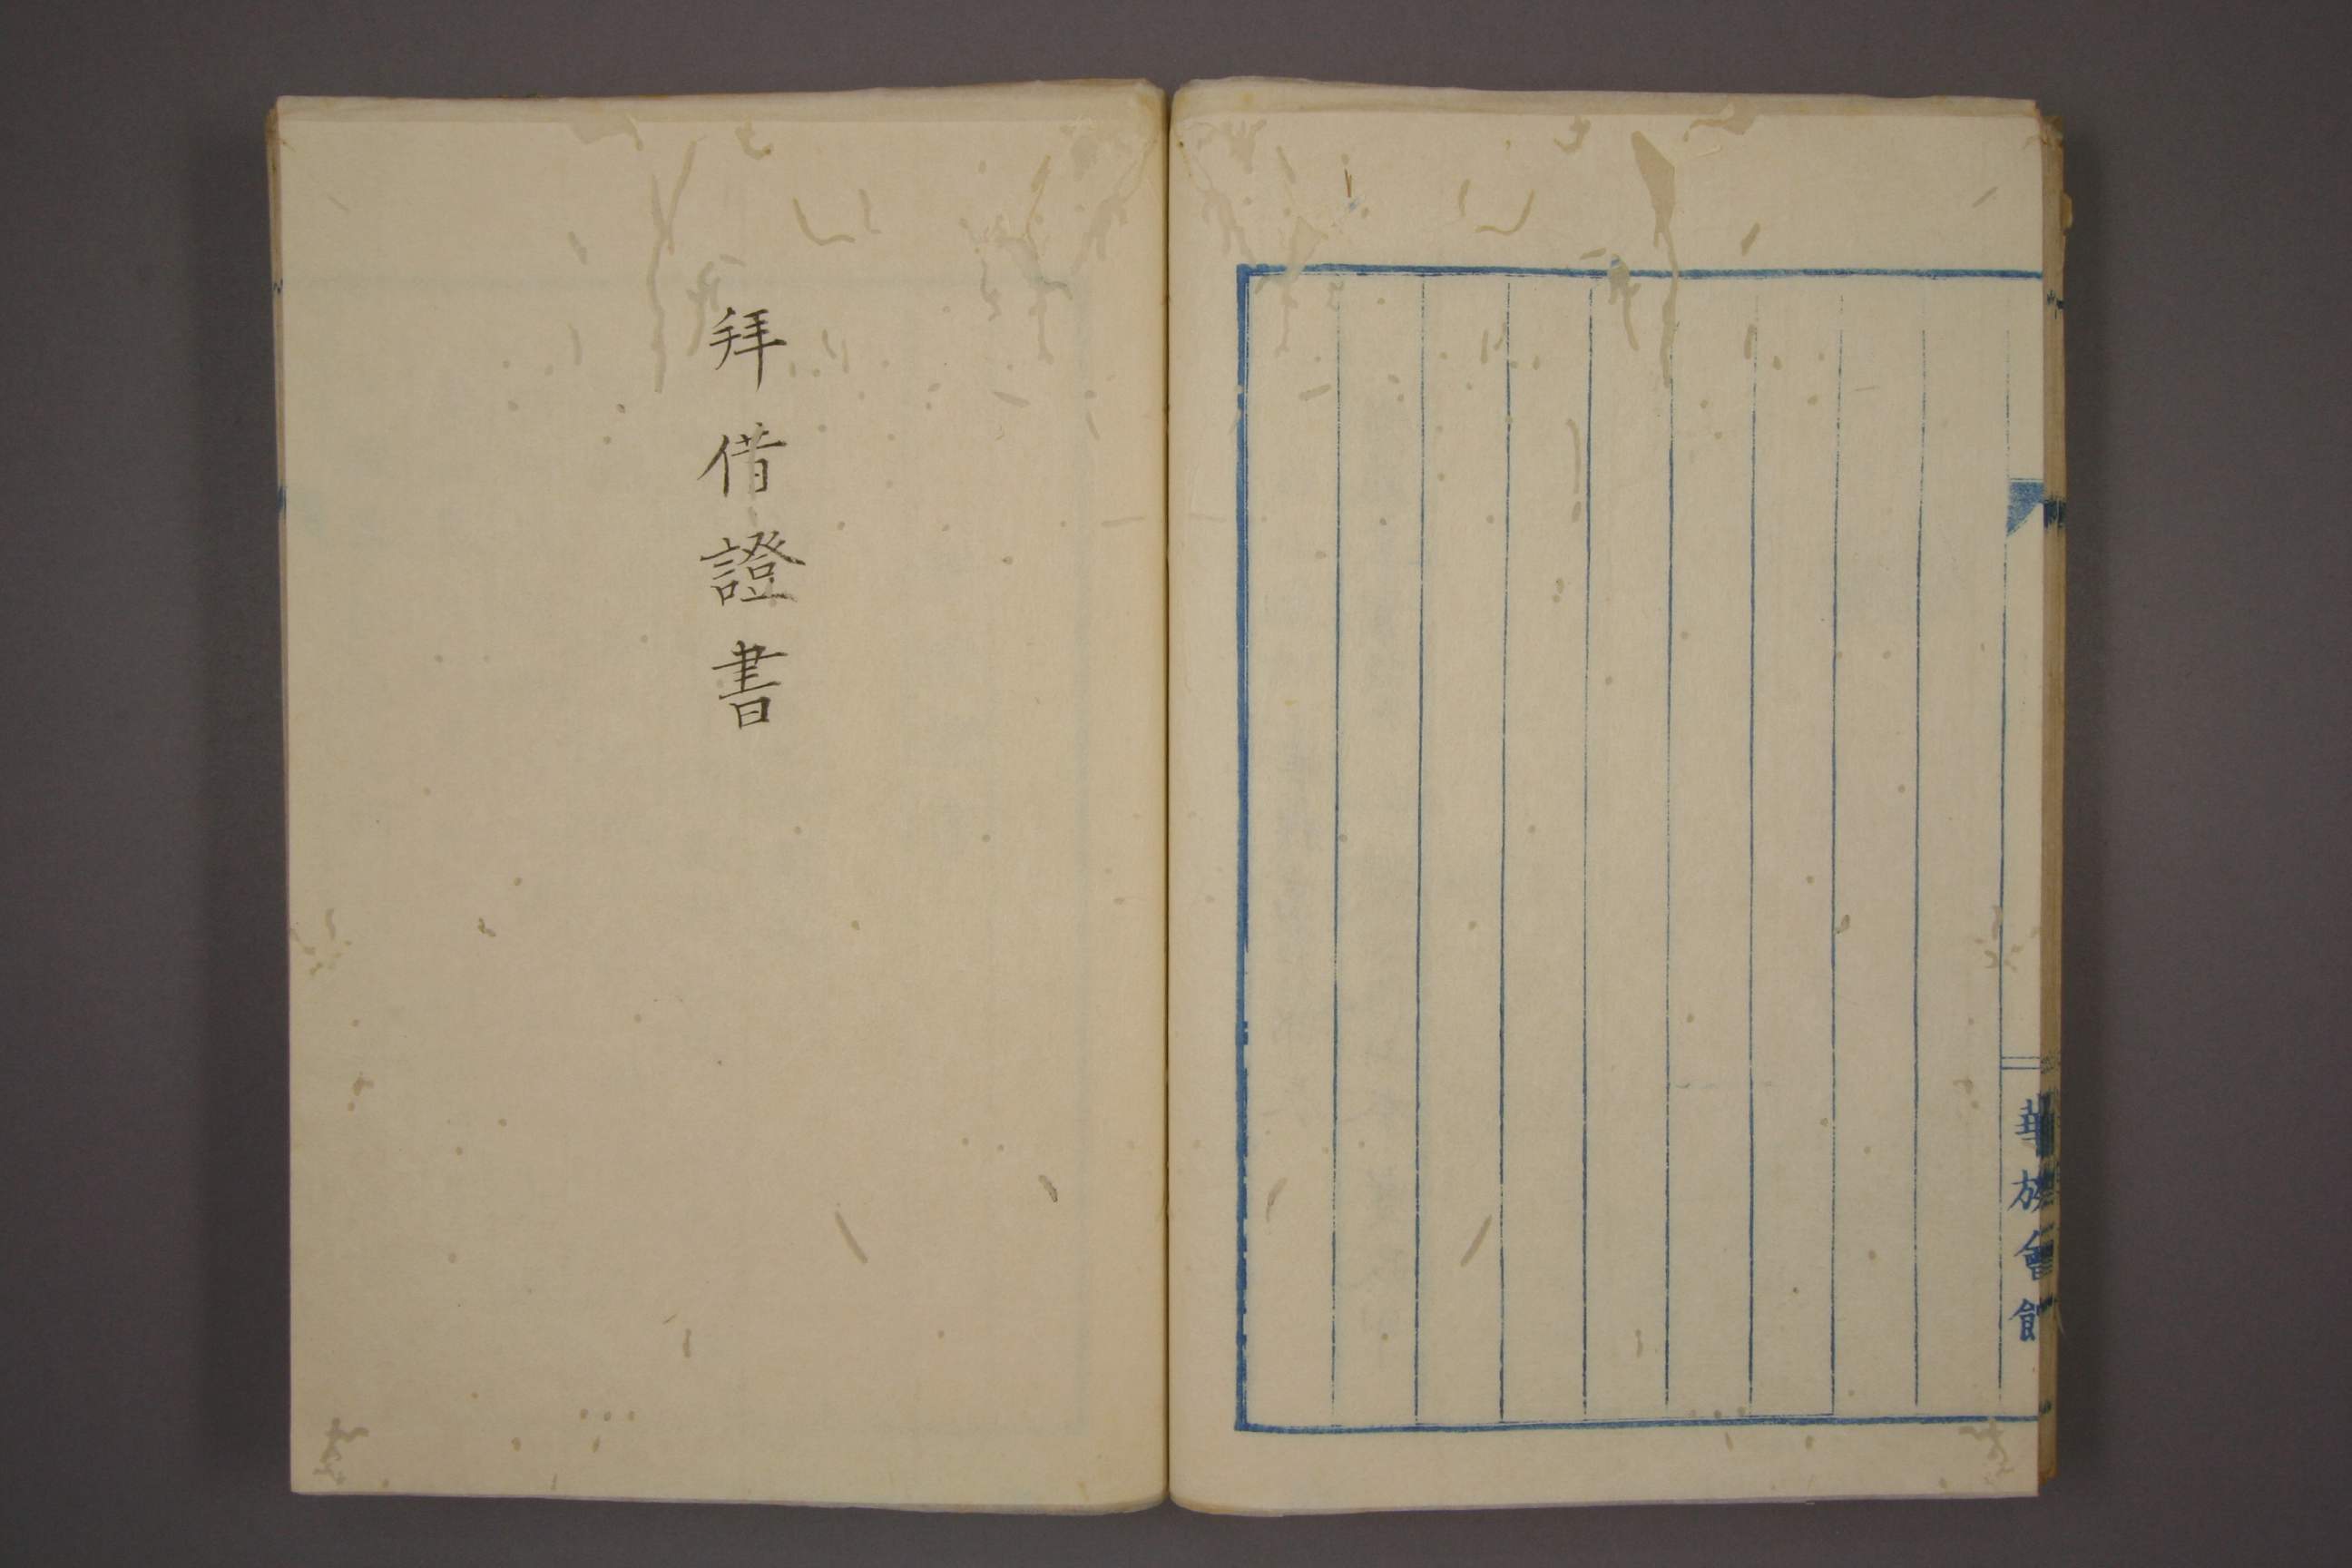 華族會館
拜借證書